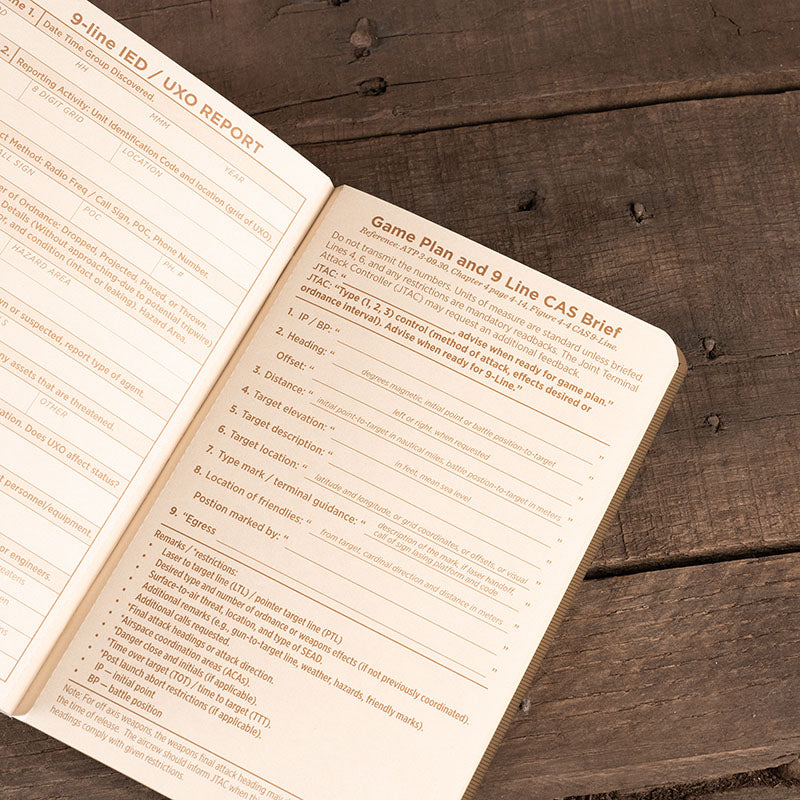 ne 1.
9-line IED / UXO REPORT
Date Time Group Discovered.
HH
MMM
YEAR
2.
Reporting Activity: Unit Identification Code and location (grid of UXO).
8 DIGIT GRID
LOCATION
ct Method: Radio Freq / Call Sign, POC, Phone Number.
ALL SIGN
POC
PH. #
er of Ordnance: Dropped, Projected, Placed, or Thrown.
Details (Without approaching-due to potential tripwire)
or, and condition (intact or leaking). Hazard Area.
HAZARD AREA
wn or suspected, report type of agent.
ny assets that are threatened.
OTHER
ation. Does UXO affect status?
t personnel/equipment.
or engineers.
eatens
en
ns
Game Plan and 9 Line CAS Brief
Reference: ATP 3-09.30, Chapter 4 page 4-14, Figure 4-4 CAS 9-Line.
Do not transmit the numbers. Units of measure are standard unless briefed.
Lines 4, 6, and any restrictions are mandatory readbacks. The Joint Terminal
Attack Controller (JTAC) may request an additional feedback.
JTAC: “ , advise when ready for game plan.”
JTAC: “Type (1, 2, 3) control (method of attack, effects desired or
ordnance interval). Advise when ready for 9-Line.”
1. IP / BP: “ ”
2. Heading: “ ”
degrees magnetic, initial point or battle position-to-target
Offset: “ ”
left or right, when requested
3. Distance: “ ”
initial point-to-target in nautical miles, battle position-to-target in meters
4. Target elevation: “ ”
in feet, mean sea level
5. Target description: “ ”
6. Target location: “ ”
latitude and longitude, or grid coordinates, or offsets, or visual
7. Type mark / terminal guidance: “ ”
description of the mark, if laser handoff,
call of sign lasing platform and code
8. Location of friendlies: “ ”
from target, cardinal direction and distance in meters
Postion marked by: “ ”
9. “Egress ”
Remarks / *restrictions:
• Laser to target line (LTL) / pointer target line (PTL)
• Desired type and number of ordnance or weapons effects (if not previously coordinated).
• Surface-to-air threat, location, and type of SEAD.
• Additional remarks (e.g, gun-to-target line, weather, hazards, friendly marks).
• Additional calls requested.
• *Final attack headings or attack direction.
• *Airspace coordination areas (ACAs).
• *Danger close and initials (if applicable).
• *Time over target (TOT) / time to target (TTT).
• *Post launch abort restrictions (if applicable).
IP — initial point
BP — battle position
Note: For off axis weapons, the weapons final attack heading may
the time of release. The aircrew should inform JTAC when th
headings comply with given restrictions.